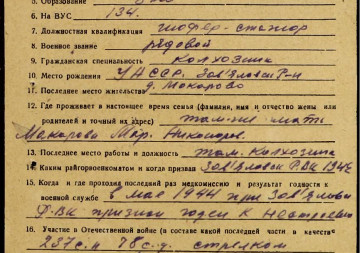 5. Образование
6. На ВУС 134.
7. Должностная квалификация шофер-стажор
8. Военное звание рядовой
9. Гражданская специальность колхозник
10. Место рождения УАССР. Зав'яловск Р-н
11. Последнее место жительства д. Макарово
12. Где проживает в настоящее время семья (фамилия, имя и отчество жены или
родителей и точный их адрес) там-же мать
Макарова Мар. Никонор.
13. Последнее место работы и должность там. Колхозник
14. Каким райгорвоенкоматом и когда призван Зав'яловск РВК 194
15. Когда и где проходил последний раз медкомиссию и результат годности к
военной службе в мае 1944 при Зав'яловск
РВК признан годен к
16. Участие в Отечественной войне (в составе какой последней части и в качестве
237 с.п 78 с.д. стрелком